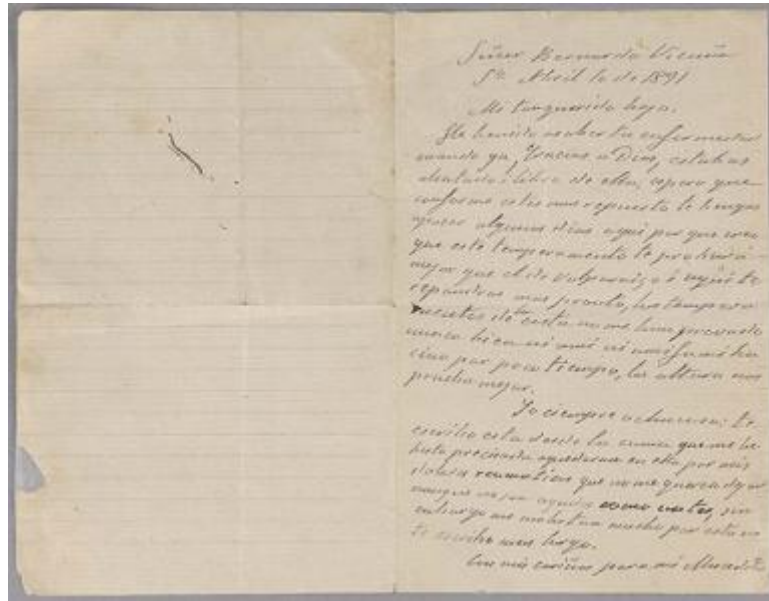 Señor Bernardo Vicuña
St° Abril 10 de 1891
Mi tan querido hijo.
He tenido saber tu enfermedad
cuando ya, Gracias a Dios, estabas
aliviado i libre de ella, espero que
conforme estes mas repuesto te vengas
apasar algunos dias aqui por que creo
que este temperamento te probará
mejor que el de Valparaiso i aqui te
repondras mas pronto, los tempera
mentos de costa no me han provado
nunca bien ni ami ni a mi familia
sino por poco tiempo, la altura nos
prueba mejor.
Yo ciempre achacosa; te
escribo esta desde la cama que me he
visto precisada aquedarme en ella por mis
dolores reumaticos que no me quieren dejar
aunque no son agudos como antes, sin
embargo me molestan mucho por esto no
te escribo mas largo.
Con mis cariños para mi